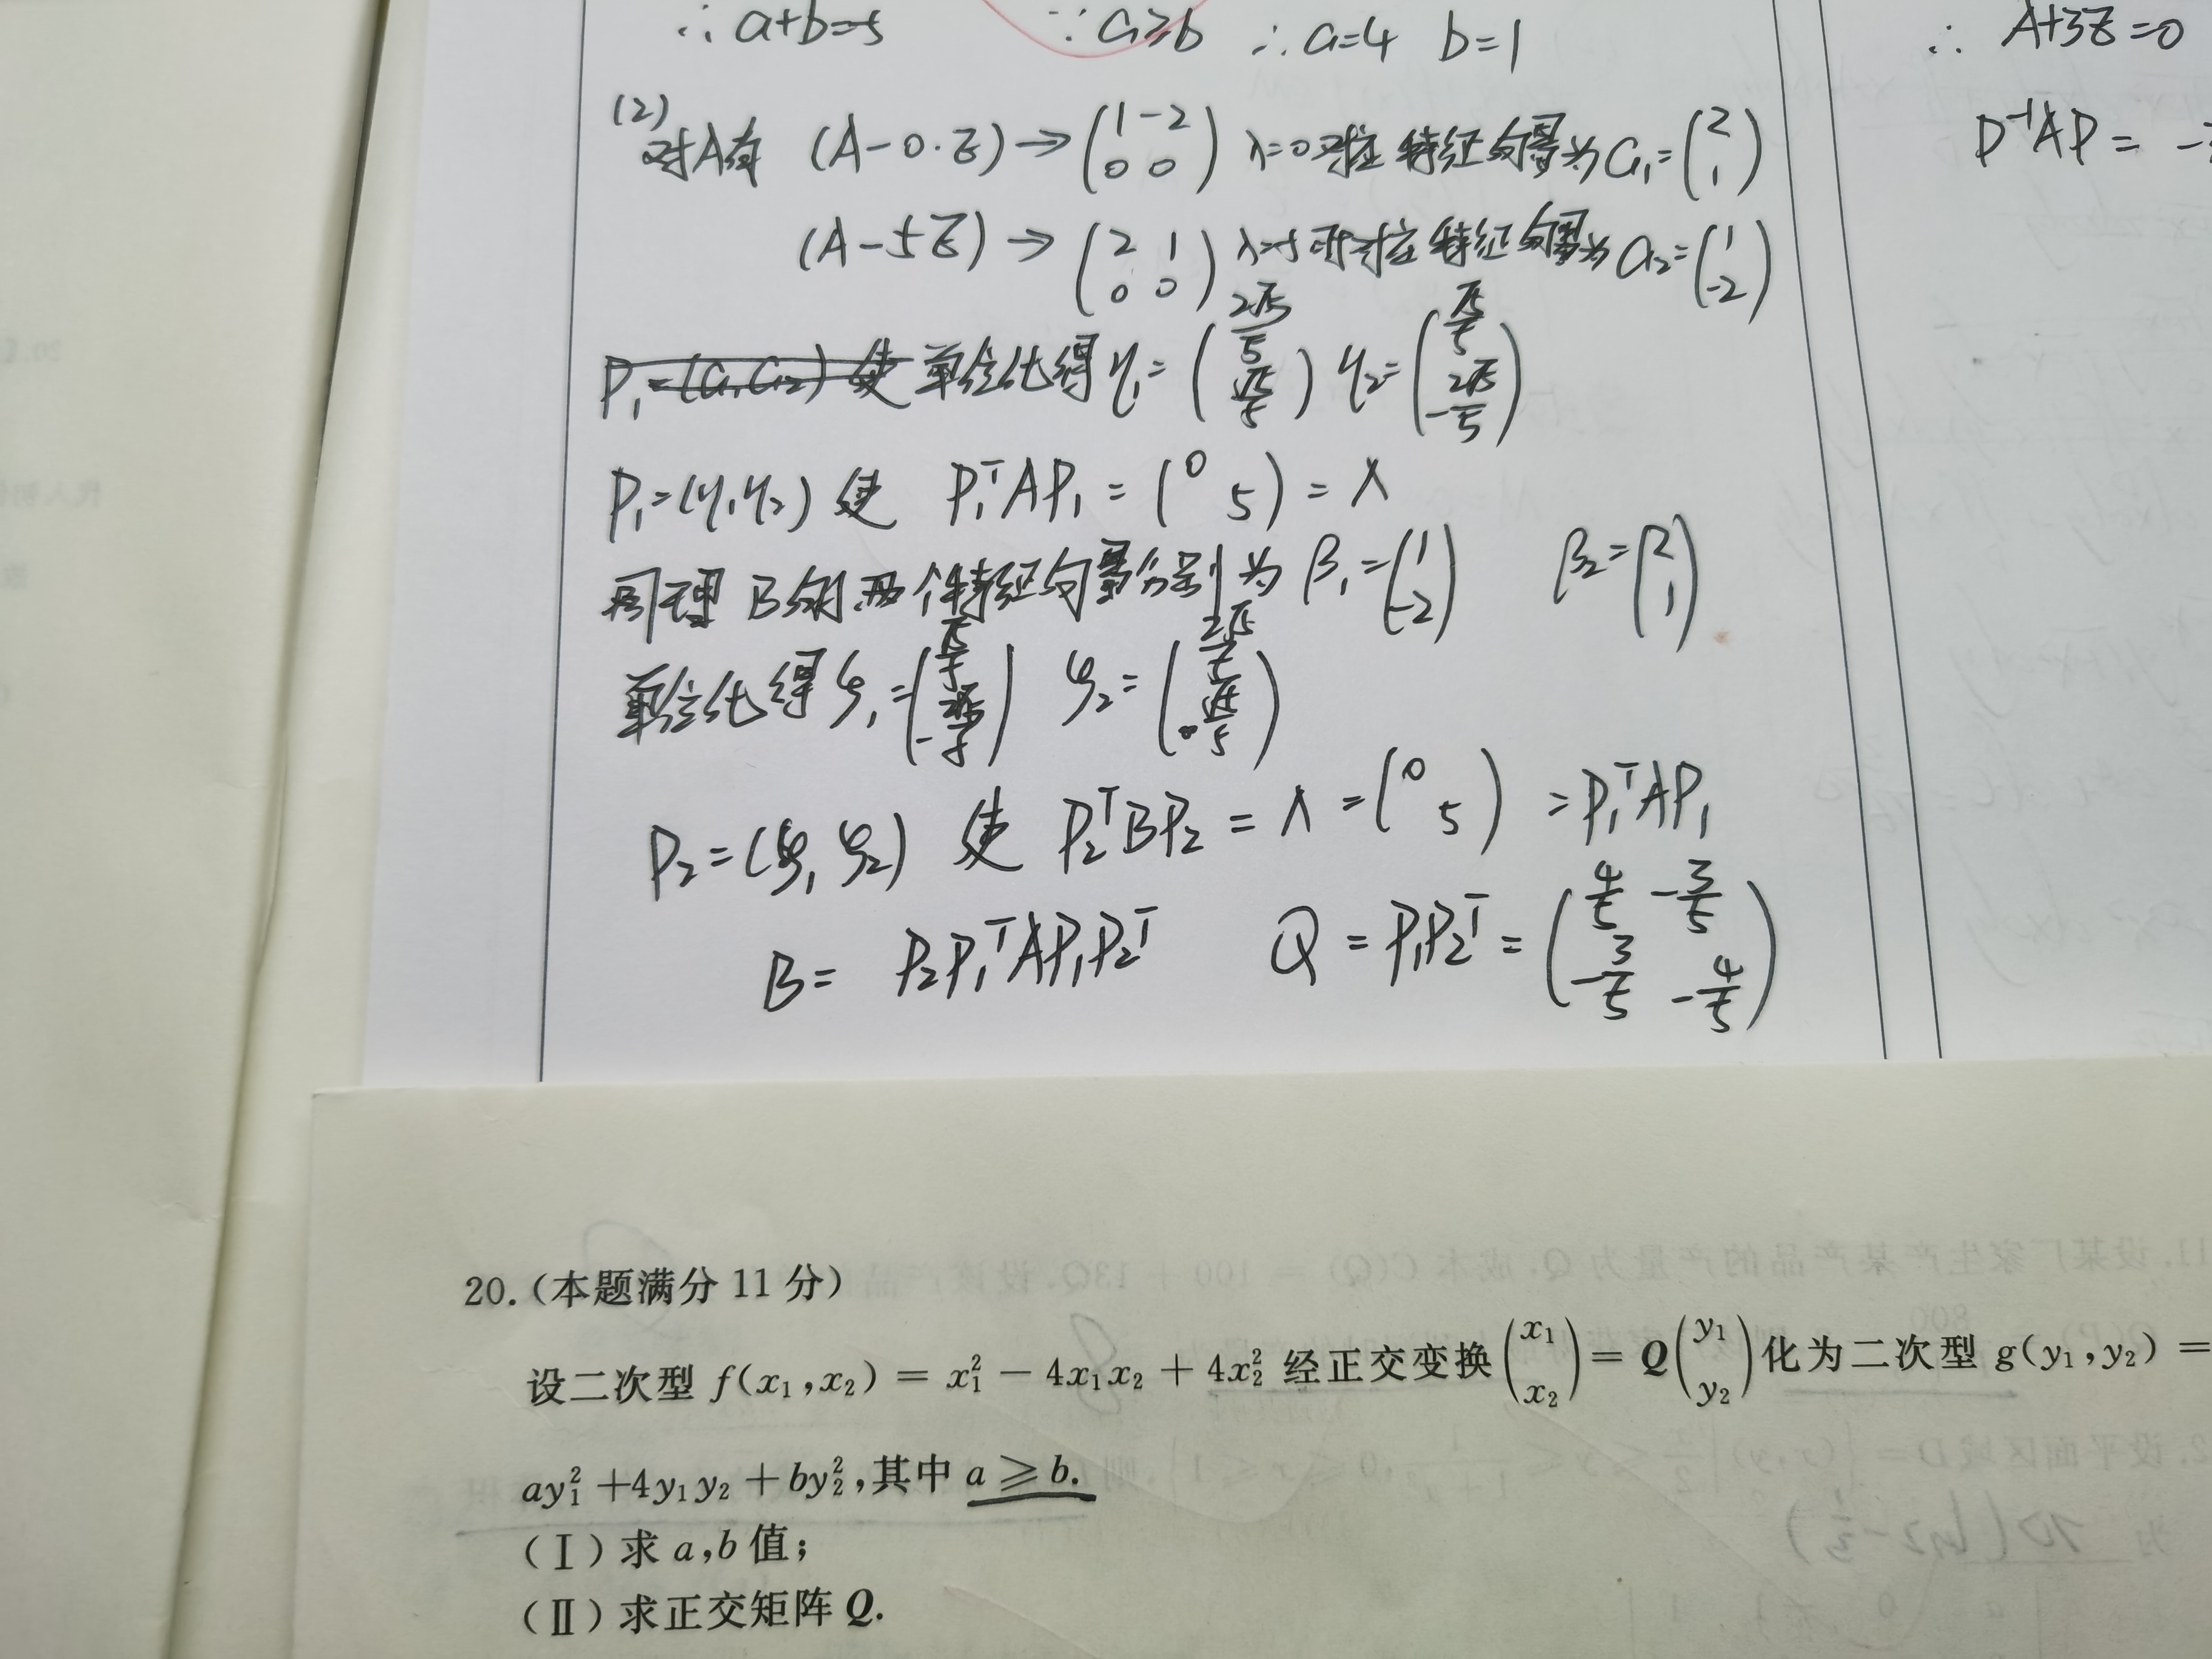 ∴ a+b=5 ∵ a≥b ∴ a=4 b=1
∴ A+3E=0
(2)
对A有 (A-0·E) → (1 -2; 0 0) λ=0对应特征向量为 α₁=(2; 1)
P⁻¹AP = -
(A-5E) → (2 1; 0 0) λ=5所对应特征向量为 α₂=(1; -2)
P₁=(α₁,α₂) 使 单位化得 η₁=(2√5/5; √5/5) η₂=(√5/5; -2√5/5)
P₁=(η₁,η₂) 使 P₁ᵀAP₁ = (0 5) = Λ
同理 B的两个特征向量分别为 β₁=(1; -2) β₂=(2; 1)
单位化得 φ₁=(√5/5; -2√5/5) φ₂=(2√5/5; √5/5)
P₂=(φ₁,φ₂) 使 P₂ᵀBP₂ = Λ = (0 5) = P₁ᵀAP₁
B= P₂P₁ᵀAP₁P₂ᵀ Q = P₁P₂ᵀ = (4/5 -3/5; -3/5 -4/5)
20.(本题满分 11 分)
设二次型 f(x₁,x₂) = x₁² - 4x₁x₂ + 4x₂² 经正交变换(x₁; x₂) = Q(y₁; y₂)化为二次型 g(y₁,y₂) =
ay₁² +4y₁y₂ + by₂²,其中 a ≥ b.
(Ⅰ)求 a,b 值;
(Ⅱ)求正交矩阵 Q.